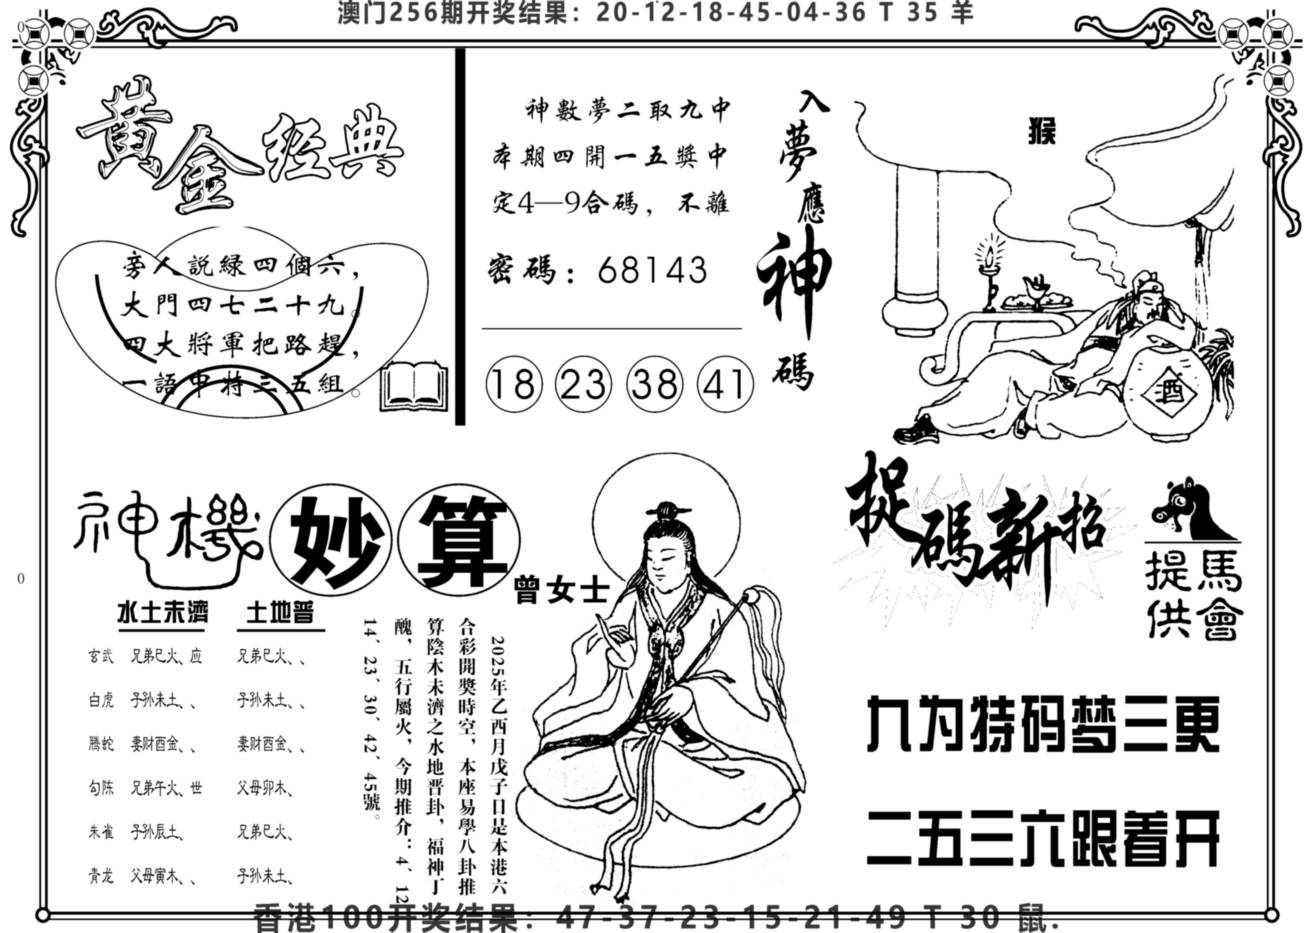 澳门256期开奖结果：20-12-18-45-04-36 T 35 羊
黄金经典
旁人説緑四個六，
大門四七二十九。
四大將軍把路趕，
一語中特三五組。
神數夢二取九中
本期四開一五獎中
定4—9合碼，不離
密碼：68143
18 23 38 41
入夢應神碼
猴
酒
神機妙算
曾女士
水土未濟 土地晋
玄武 兄弟巳火、应 兄弟巳火、、
白虎 子孙未土、、 子孙未土、、
腾蛇 妻财酉金、、 妻财酉金、、
勾陈 兄弟午火、世 父母卯木、
朱雀 子孙辰土、 兄弟巳火、
青龙 父母寅木、、 子孙未土、
2025年乙酉月戊子日是本港六
合彩開獎時空，本座易學八卦推
算陰木未濟之水地晋卦，福神丁
醜，五行屬火，今期推介：4、12
14、23、30、42、45號。
捉碼新招
馬會
提供
九为特码梦三更
二五三六跟着开
香港100开奖结果：47-37-23-15-21-49 T 30 鼠.
0
0